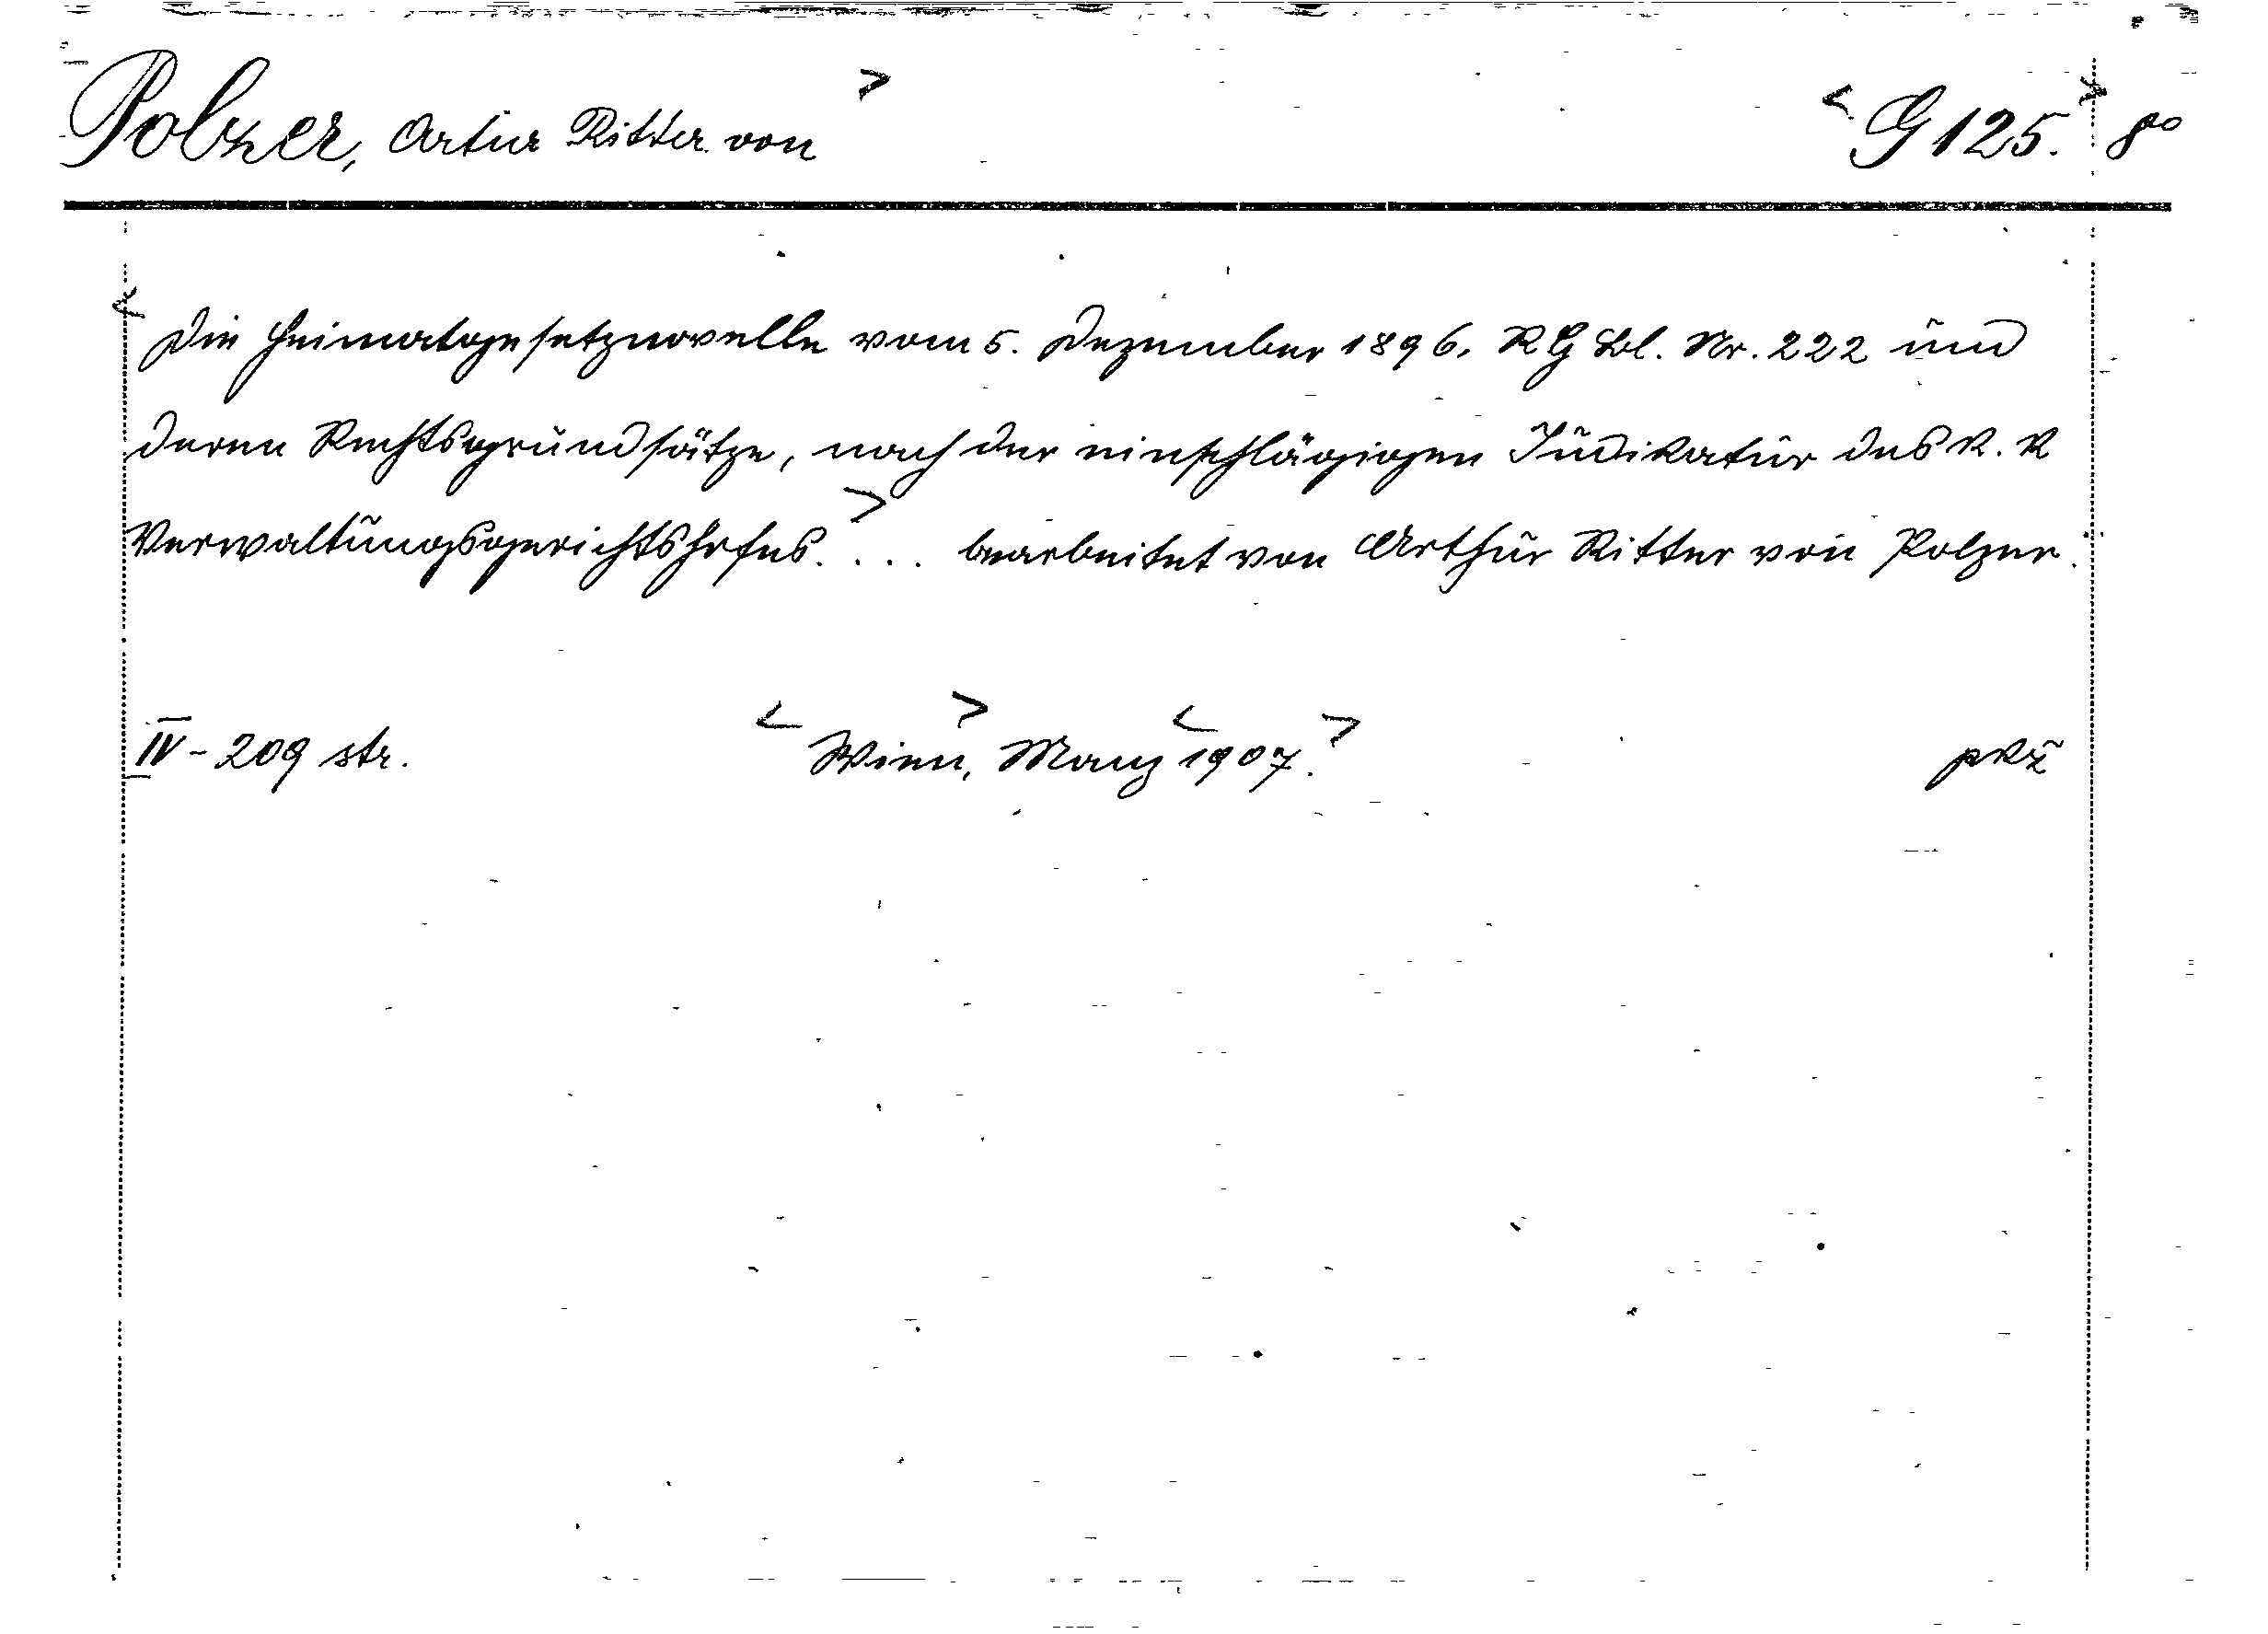 Polzer, Artur Ritter von G 125. 8°
Die Heimatgesetznovelle vom 5. Dezember 1896. RGBl. Nr. 222 und
deren Rechtsgrundsätze, nach der einschlägigen Judikatur des k. k
Verwaltungsgerichtshofes. ... bearbeitet von Arthur Ritter von Polzer.
IV - 209 str. Wien, Manz 1907.